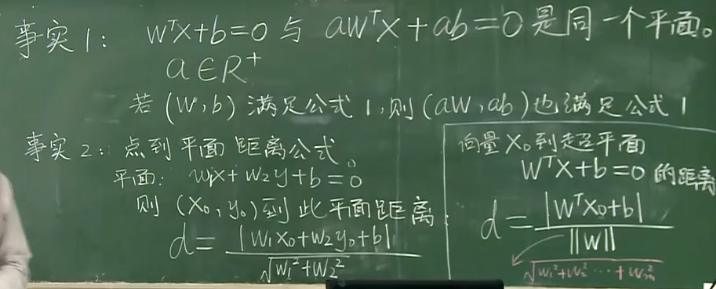 事实1: WᵀX+b=0 与 aWᵀX+ab=0 是同一个平面。
a∈R⁺
若 (W,b) 满足公式1,则(aW,ab)也满足公式1
事实2: 点到平面距离公式
平面: W₁X+W₂y+b=0
则 (X₀,y₀)到此平面距离:
d=|W₁X₀+W₂y₀+b|/√(W₁²+W₂²)
向量X₀到超平面
WᵀX+b=0 的距离
d=|WᵀX₀+b|/||W||
√(W₁²+W₂²…+Wₘ²)